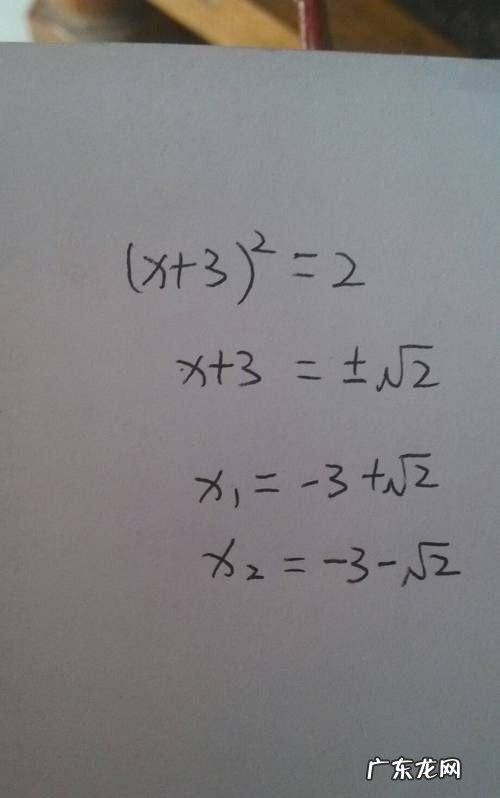 (x+3)² = 2
x+3 = ±√2
x₁ = -3+√2
x₂ = -3-√2
广东龙网